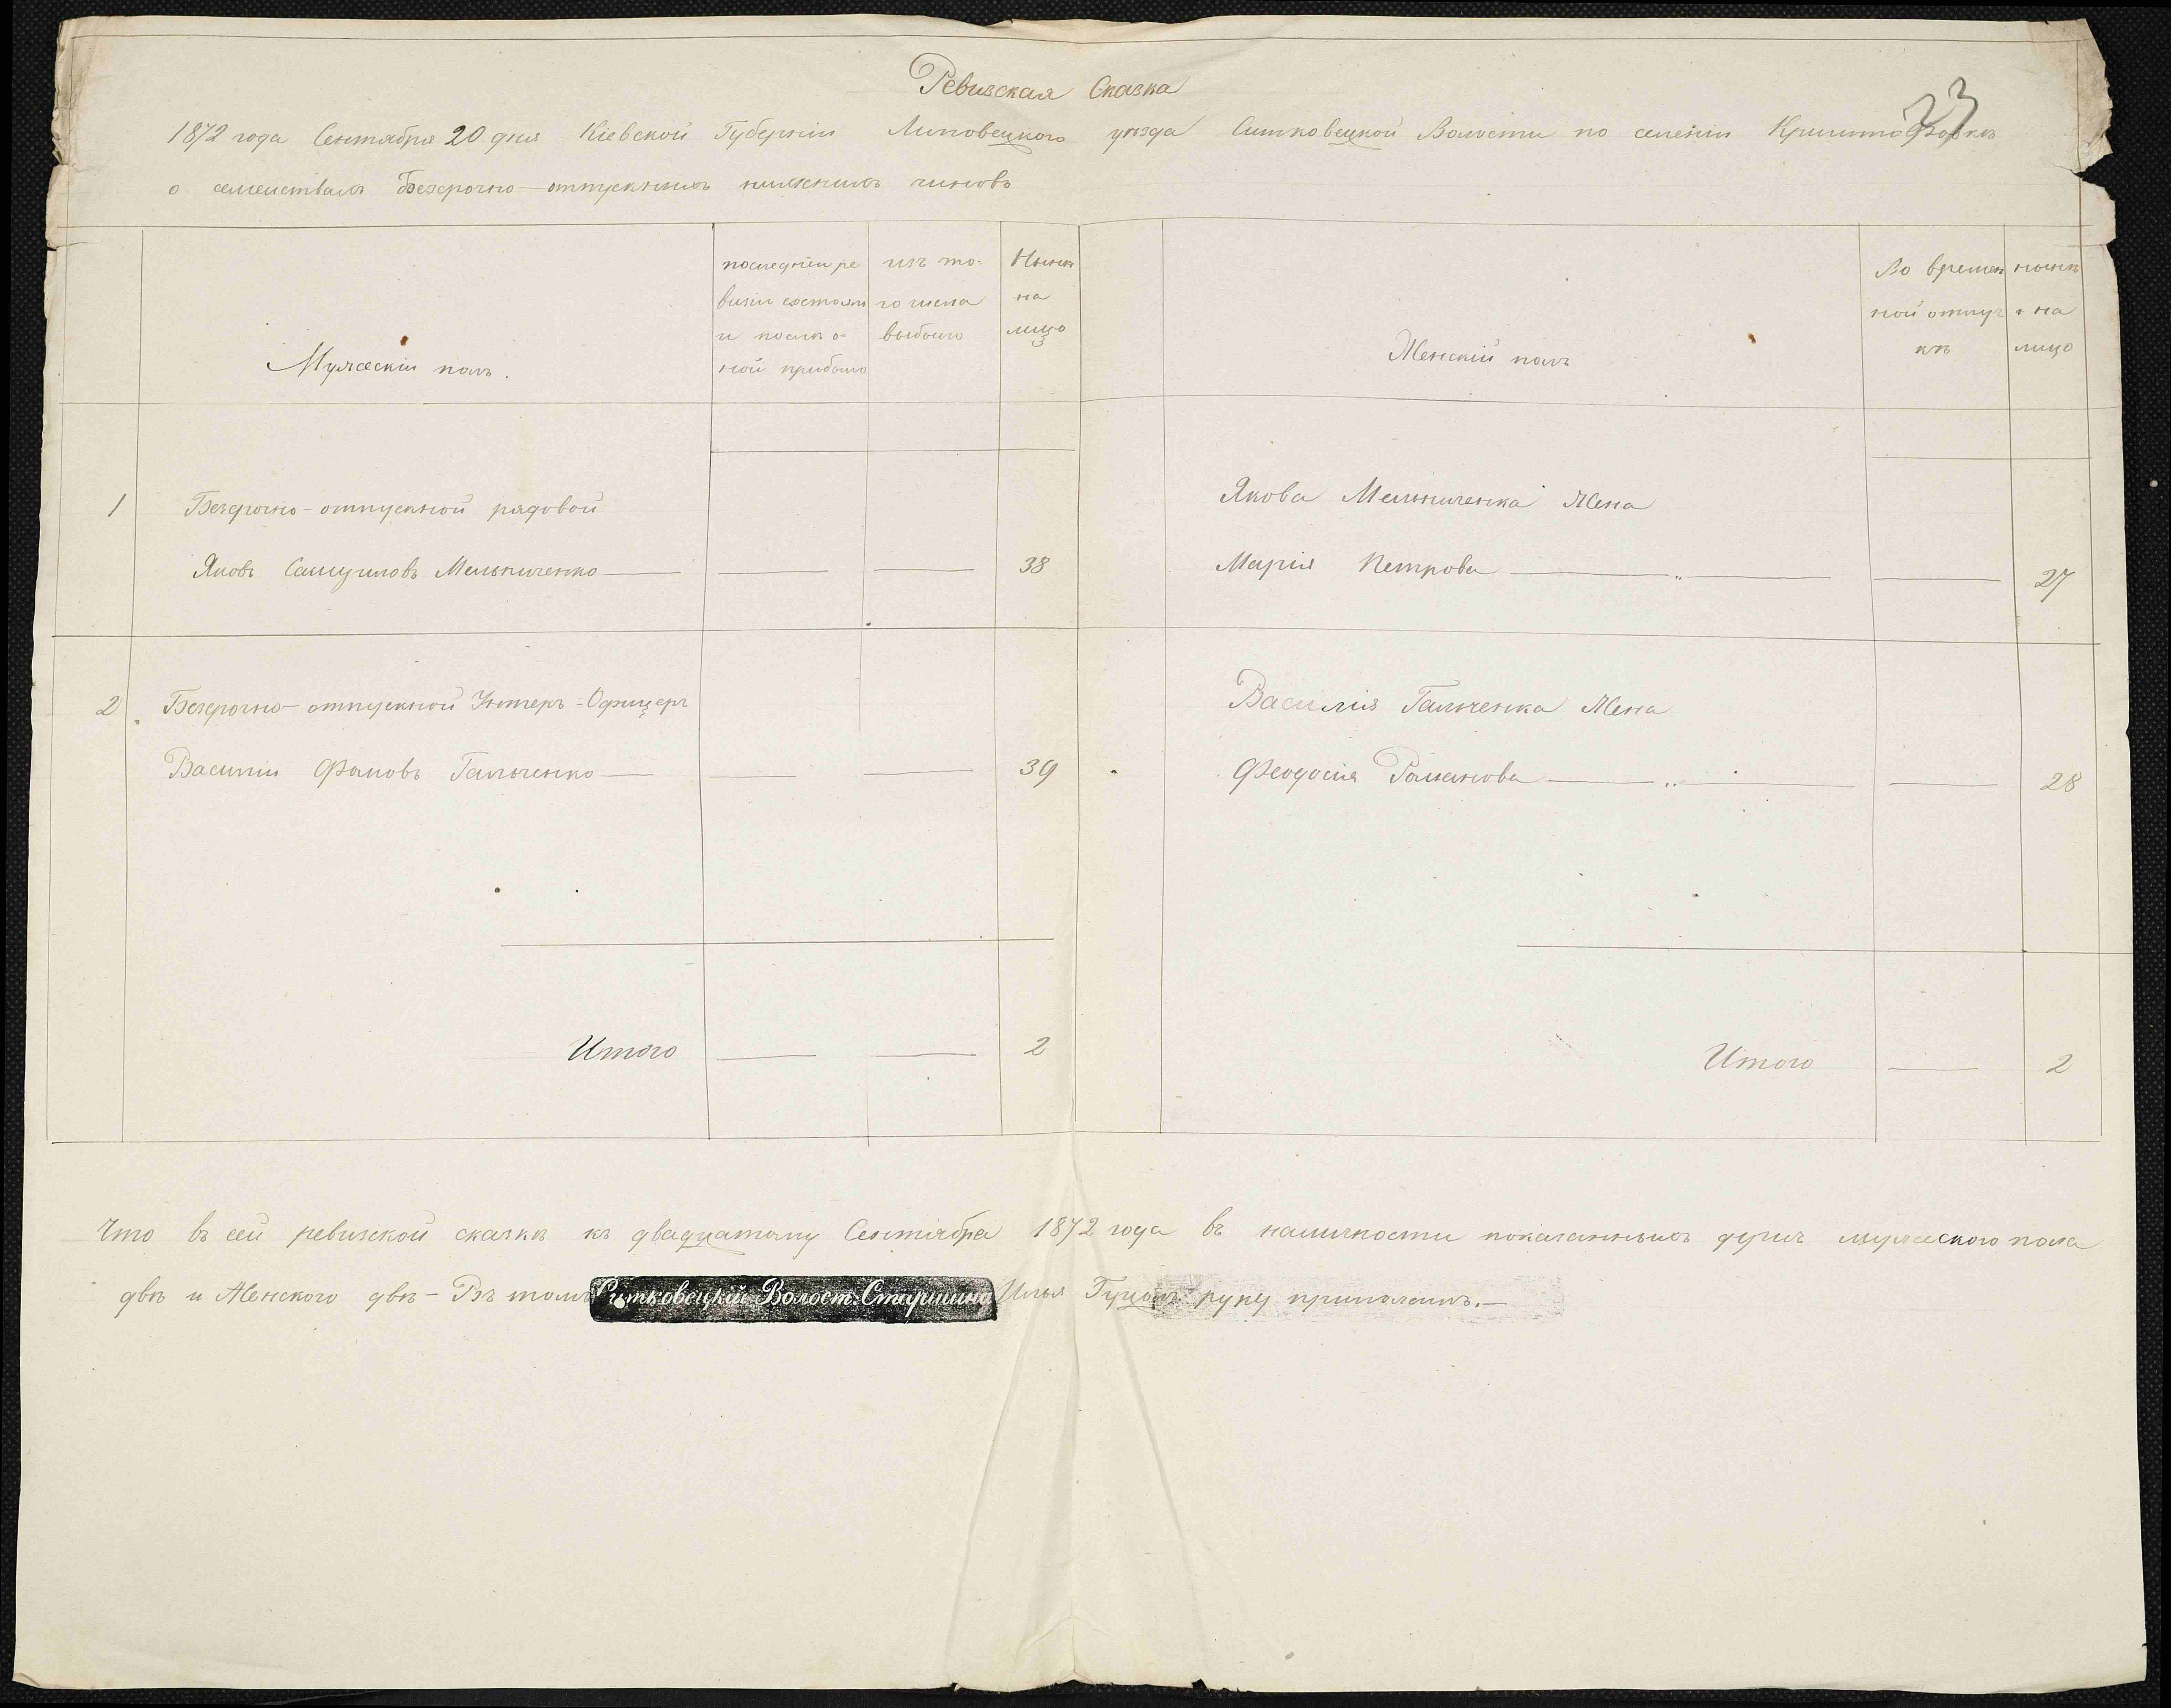 Ревизская Сказка
23
1872 года Сентября 20 дня Кіевской Губерніи Липовецкого уѣзда Ситковецкой Волости по селенію
о семействахъ безсрочно-отпускныхъ нижнихъ чиновъ
Мужескій полъ.
последнѣй ре
визіи состояло
и послѣ о-
ной прибыло
изъ то-
го числа
выбыло
Нынѣ
на
лицо
Женскій полъ
Во времен
ной отлуч
кѣ
нынѣ
на
лицо
1 Безсрочно-отпускной рядовой
Яковъ Самуиловъ Мельниченко 38
Якова Мельниченка Жена
Марія Петрова 27
2 Безсрочно-отпускной Унтеръ-Офицеръ
Василій Фомовъ Гальченко 39
Василія Гальченка Жена
Феодосія Романова 28
Итого 2
Итого 2
Что въ сей ревизской сказкѣ къ двадцатому Сентября 1872 года въ наличности показанныхъ душъ мужеского пола
двѣ и Женского двѣ - Въ томъ Ситковецкій Волост. Старшина Илья руку приложилъ.-